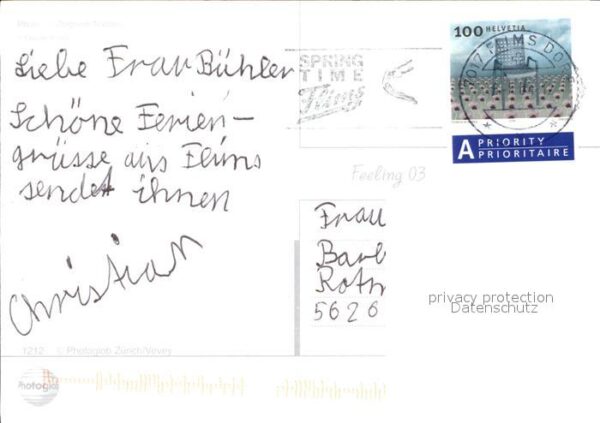 Liebe Frau Bühler
Schöne Ferien-
grüsse aus Flims
sendet ihnen
Christian
1212 © Photoglob Zürich/Vevey
Photoglob
SPRING
TIME
Flims
100 HELVETIA
7017 FLIMS DO
A PRIORITY
PRIORITAIRE
Feeling 03
Frau
Barb
Roth
5626
privacy protection
Datenschutz